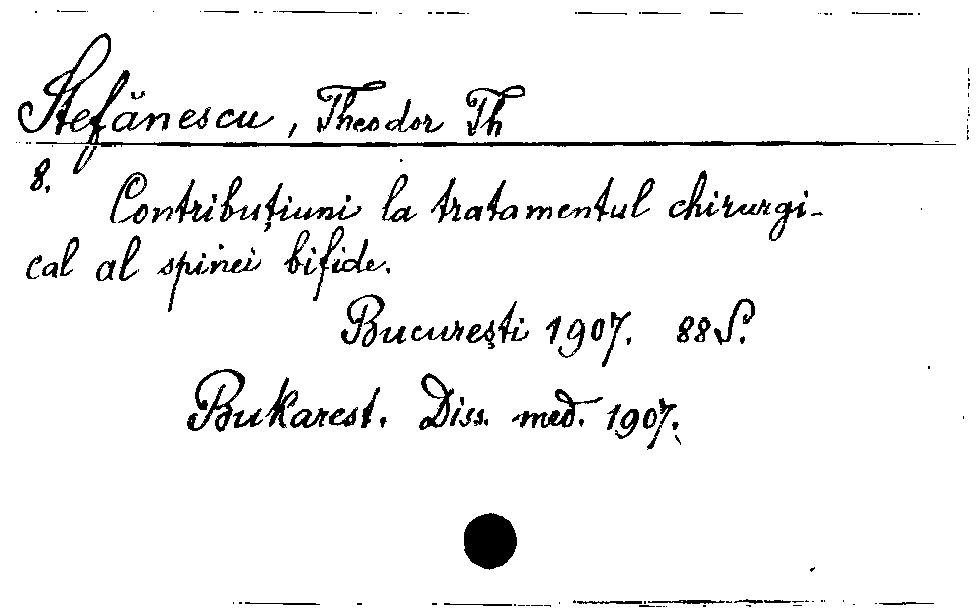 Ștefănescu, Theodor Th
8.
Contribuțiuni la tratamentul chirurgi-
cal al spinei bifide.
București 1907. 88 S.
Bukarest. Diss. med. 1907.